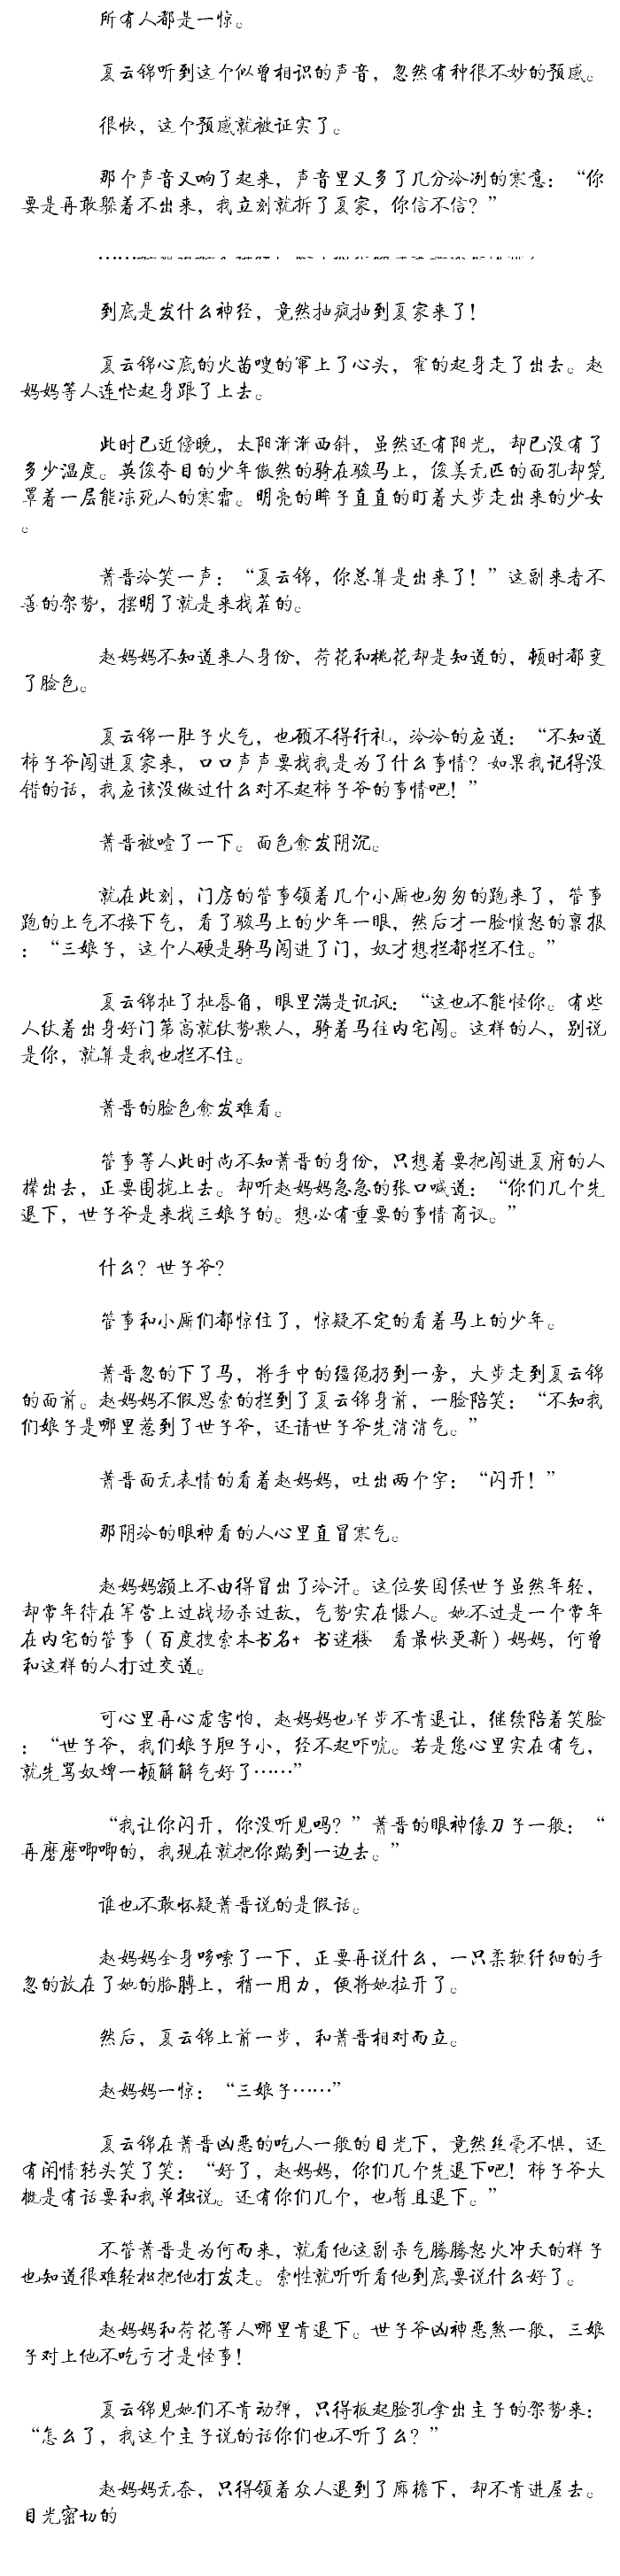 所有人都是一惊。
夏云锦听到这个似曾相识的声音，忽然有种很不妙的预感。
很快，这个预感就被证实了。
那个声音又响了起来，声音里又多了几分冷冽的寒意：“你
要是再敢躲着不出来，我立刻就拆了夏家，你信不信？”
到底是发什么神经，竟然抽疯抽到夏家来了！
夏云锦心底的火苗嗖的窜上了心头，霍的起身走了出去。赵
妈妈等人连忙起身跟了上去。
此时已近傍晚，太阳渐渐西斜，虽然还有阳光，却已没有了
多少温度。英俊夺目的少年傲然的骑在骏马上，俊美无匹的面孔却笼
罩着一层能冻死人的寒霜。明亮的眸子直直的盯着大步走出来的少女
。
萧晋冷笑一声：“夏云锦，你总算是出来了！”这副来者不
善的架势，摆明了就是来找茬的。
赵妈妈不知道来人身份，荷花和桃花却是知道的，顿时都变
了脸色。
夏云锦一肚子火气，也顾不得行礼，冷冷的应道：“不知道
柿子爷闯进夏家来，口口声声要找我是为了什么事情？如果我记得没
错的话，我应该没做过什么对不起柿子爷的事情吧！”
萧晋被噎了一下。面色愈发阴沉。
就在此刻，门房的管事领着几个小厮也匆匆的跑来了，管事
跑的上气不接下气，看了骏马上的少年一眼，然后才一脸愤怒的禀报
：“三娘子，这个人硬是骑马闯进了门，奴才想拦都拦不住。”
夏云锦扯了扯唇角，眼里满是讥讽：“这也不能怪你。有些
人仗着出身好门第高就仗势欺人，骑着马往内宅闯。这样的人，别说
是你，就算是我也拦不住。
萧晋的脸色愈发难看。
管事等人此时尚不知萧晋的身份，只想着要把闯进夏府的人
撵出去，正要围拢上去。却听赵妈妈急急的张口喊道：“你们几个先
退下，世子爷是来找三娘子的。想必有重要的事情商议。”
什么？世子爷？
管事和小厮们都惊住了，惊疑不定的看着马上的少年。
萧晋忽的下了马，将手中的缰绳扔到一旁，大步走到夏云锦
的面前。赵妈妈不假思索的拦到了夏云锦身前，一脸陪笑：“不知我
们娘子是哪里惹到了世子爷，还请世子爷先消消气。”
萧晋面无表情的看着赵妈妈，吐出两个字：“闪开！”
那阴冷的眼神看的人心里直冒寒气。
赵妈妈额上不由得冒出了冷汗。这位安国侯世子虽然年轻，
却常年待在军营上过战场杀过敌，气势实在慑人。她不过是一个常年
在内宅的管事（百度搜索本书名+ 书迷楼 看最快更新）妈妈，何曾
和这样的人打过交道。
可心里再心虚害怕，赵妈妈也半步不肯退让，继续陪着笑脸
：“世子爷，我们娘子胆子小，经不起吓唬。若是您心里实在有气，
就先骂奴婢一顿解解气好了……”
“我让你闪开，你没听见吗？”萧晋的眼神像刀子一般：“
再磨磨唧唧的，我现在就把你踹到一边去。”
谁也不敢怀疑萧晋说的是假话。
赵妈妈全身哆嗦了一下，正要再说什么，一只柔软纤细的手
忽的放在了她的胳膊上，稍一用力，便将她拉开了。
然后，夏云锦上前一步，和萧晋相对而立。
赵妈妈一惊：“三娘子……”
夏云锦在萧晋凶恶的吃人一般的目光下，竟然丝毫不惧，还
有闲情转头笑了笑：“好了，赵妈妈，你们几个先退下吧！柿子爷大
概是有话要和我单独说。还有你们几个，也暂且退下。”
不管萧晋是为何而来，就看他这副杀气腾腾怒火冲天的样子
也知道很难轻松把他打发走。索性就听听看他到底要说什么好了。
赵妈妈和荷花等人哪里肯退下。世子爷凶神恶煞一般，三娘
子对上他不吃亏才是怪事！
夏云锦见她们不肯动弹，只得板起脸孔拿出主子的架势来：
“怎么了，我这个主子说的话你们也不听了么？”
赵妈妈无奈，只得领着众人退到了廊檐下，却不肯进屋去。
目光密切的